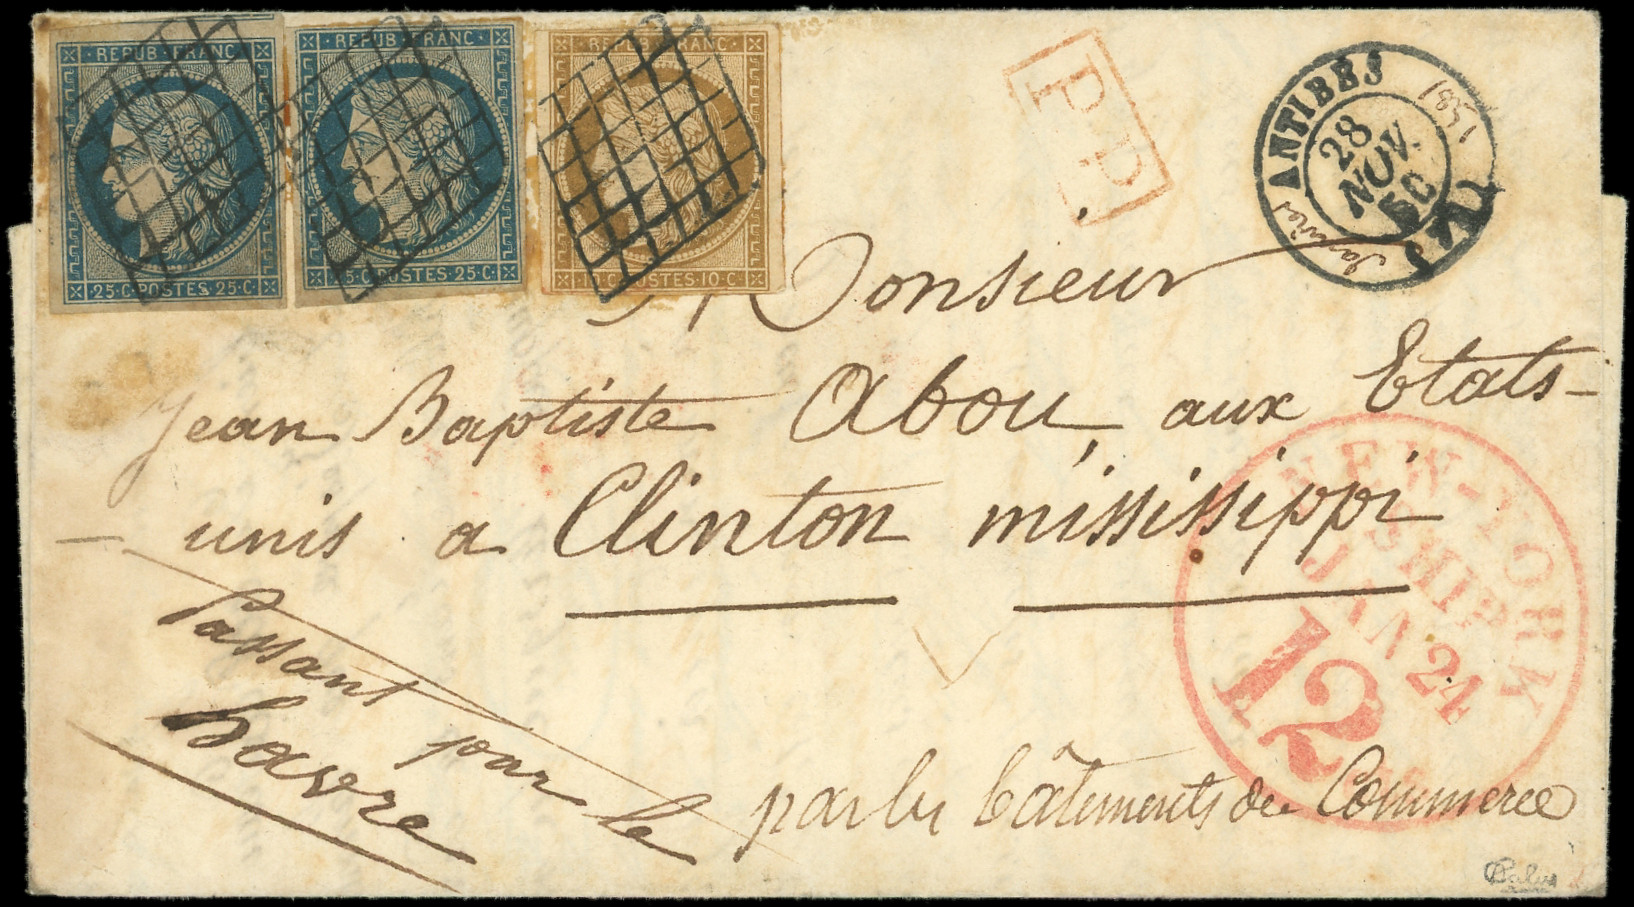 REPUB·FRANC
25·C·POSTES·25·C·
REPUB·FRANC
25·C·POSTES·25·C·
REPUB·FRANC
10·C·POSTES·10·C·
P.P.
ANTIBES
28
NOV.
50
1851
Janvier
Monsieur
Jean Baptiste Abou, aux Etats-
unis a Clinton mississippi
Passant pour le
havre
par les bâtiments de Commerce
NEW-YORK
SHIP
JAN 24
12